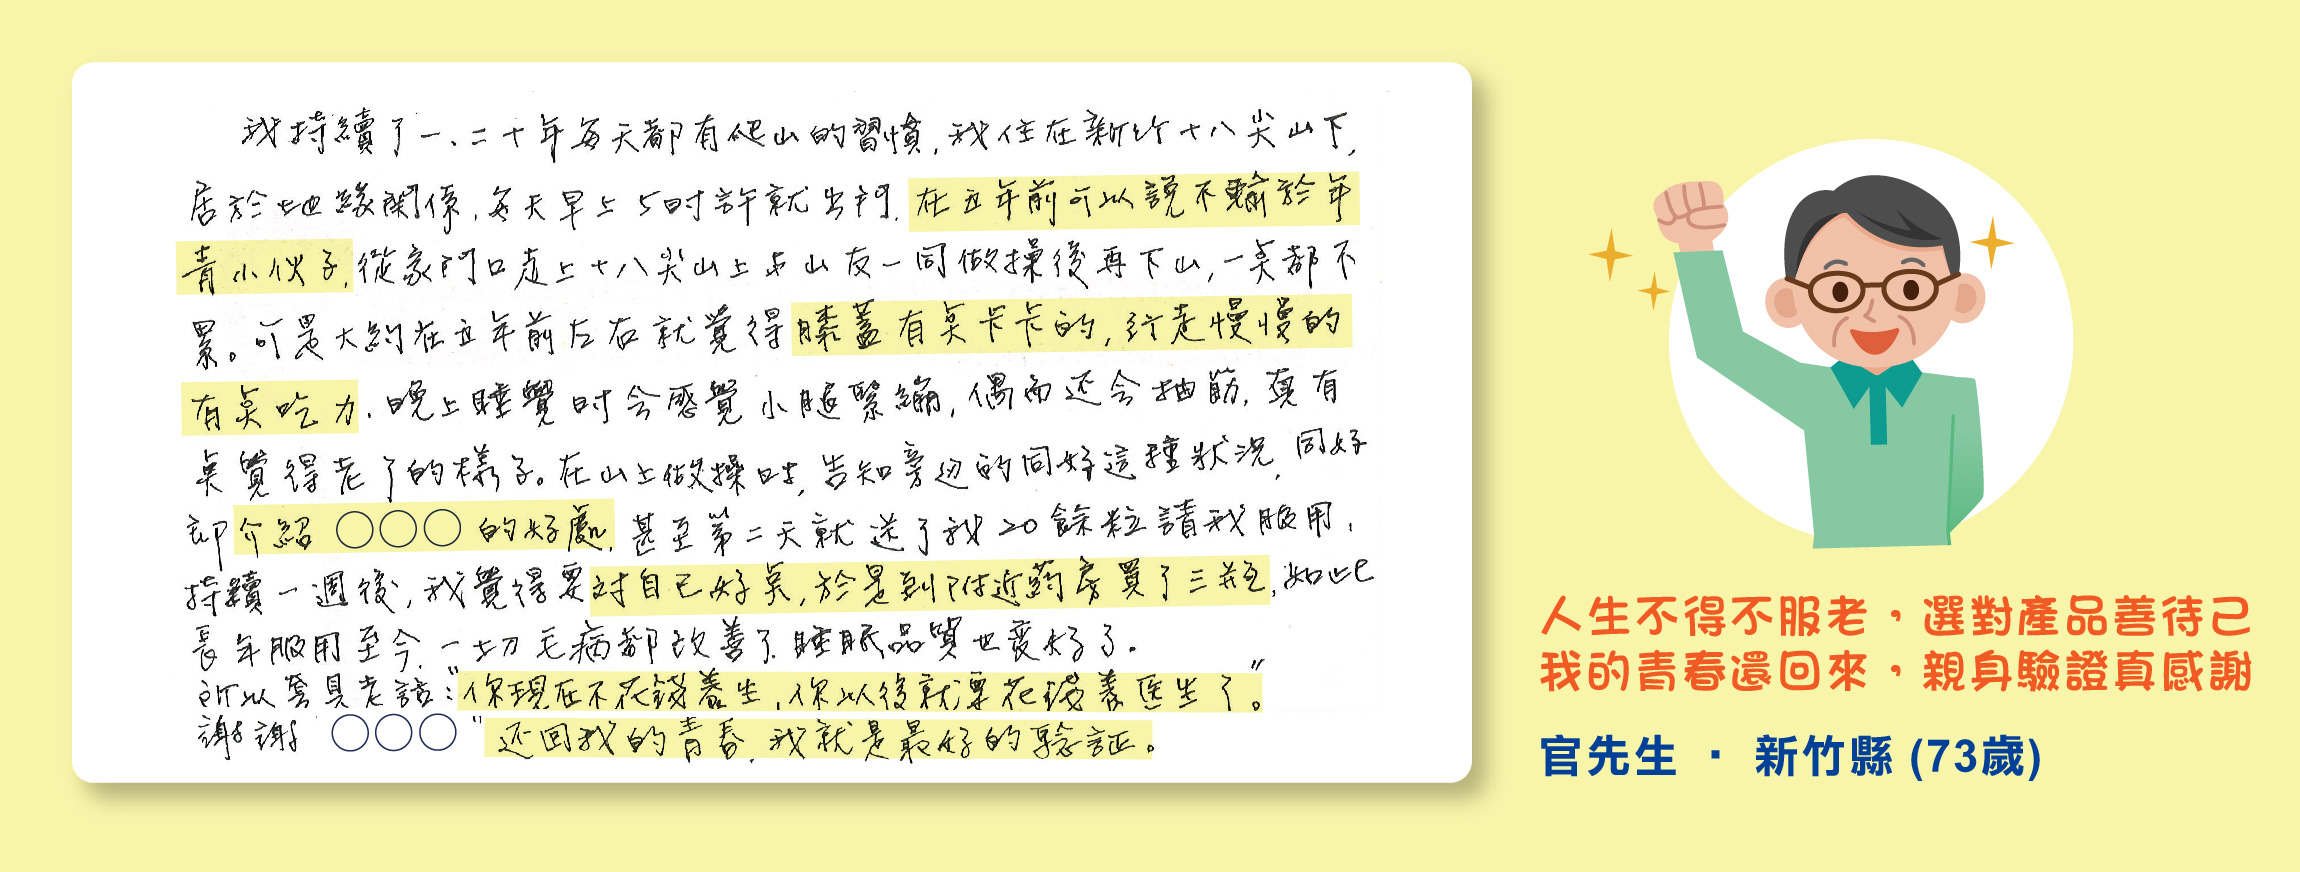 我持續了一、二十年每天都有爬山的習慣,我住在新竹十八尖山下,
居於地緣關係,每天早上5時許就出門,在五年前可以說不輸於年
青小伙子,從家門口走上十八尖山上與山友一同做操後再下山,一点都不
累。可是大約在五年前左右就覺得膝蓋有点卡卡的,行走慢慢的
有点吃力,晚上睡覺時会感覺小腿緊繃,偶而还会抽筋,真有
点覺得老了的樣子。在山上做操時,告知旁边的同好這種狀況,同好
即介紹〇〇〇的好處,甚至第二天就送了我20餘粒請我服用,
持續一週後,我覺得要对自己好点,於是到附近药房買了三瓶,如此
長年服用至今,一切毛病都改善了,睡眠品質也変好了。
所以套具老話:"你現在不花錢養生,你以後就要花錢養医生了。"
謝謝〇〇〇"还回我的青春,我就是最好的驗証。
人生不得不服老,選對產品善待己
我的青春還回來,親身驗證真感謝
官先生 · 新竹縣 (73歲)